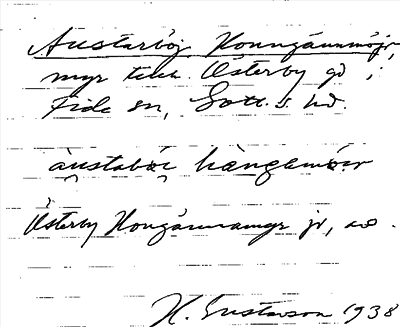 Austarböj Honngånnmöjr,
myr tillh. Österby gd i
Fide sn, Gotl. s. hd.
àustaböi hàngamöir
Österby Hongånnamyr jr, ad.
H. Gustavson 1938